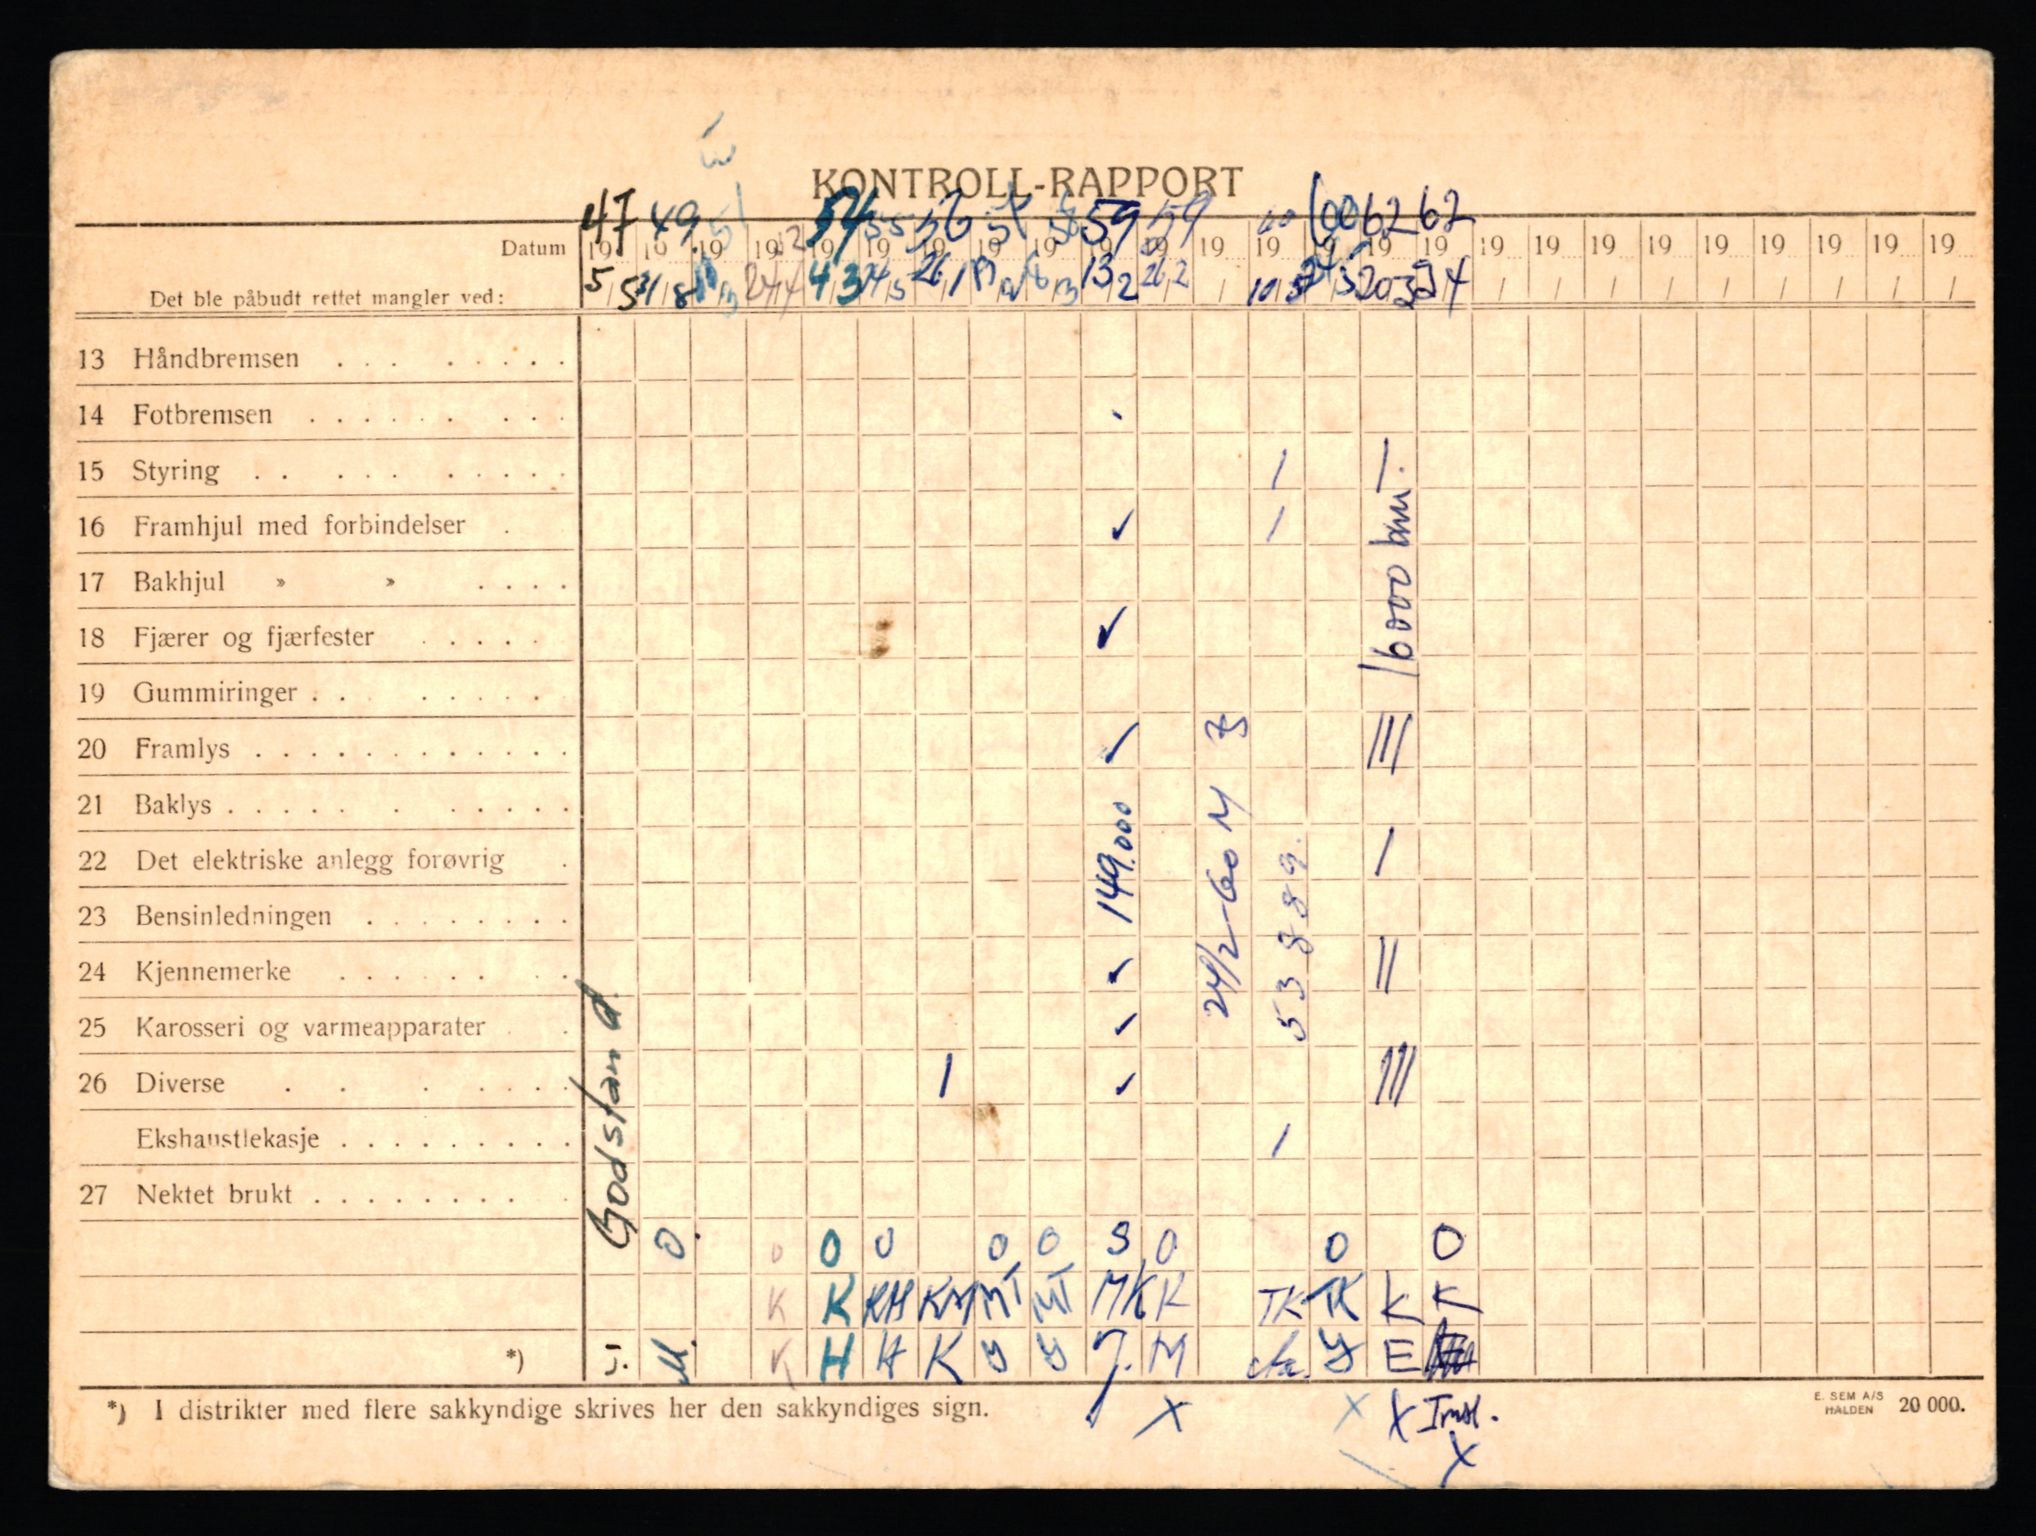 KONTROLL-RAPPORT
47 49 51 52 54 55 56 57 58 59 59 60 60 62 62
Datum 19 19 19 19 19 19 19 19 19 19 19 19 19 19 19 19 19 19 19 19 19 19 19 19 19
Det ble påbudt rettet mangler ved: 5/5 31/8 24/4 4/3 26/1 13/2 26/2 10/5 20/3 / / / / / / / / /
13 Håndbremsen
14 Fotbremsen
15 Styring
16 Framhjul med forbindelser
17 Bakhjul » »
18 Fjærer og fjærfester
19 Gummiringer
20 Framlys
21 Baklys
22 Det elektriske anlegg forøvrig
23 Bensinledningen
24 Kjennemerke
25 Karosseri og varmeapparater
26 Diverse
Ekshaustlekasje
27 Nektet brukt
Godstand
149.000
24/2-60 M
53889.
16000 km
O. O O O O O S O O O
K K KH KM MT MT MK K TK TK K K
*) M. K H H K Y Y J. M Y E
*) I distrikter med flere sakkyndige skrives her den sakkyndiges sign. X X X X
E. SEM A/S
HALDEN 20 000.